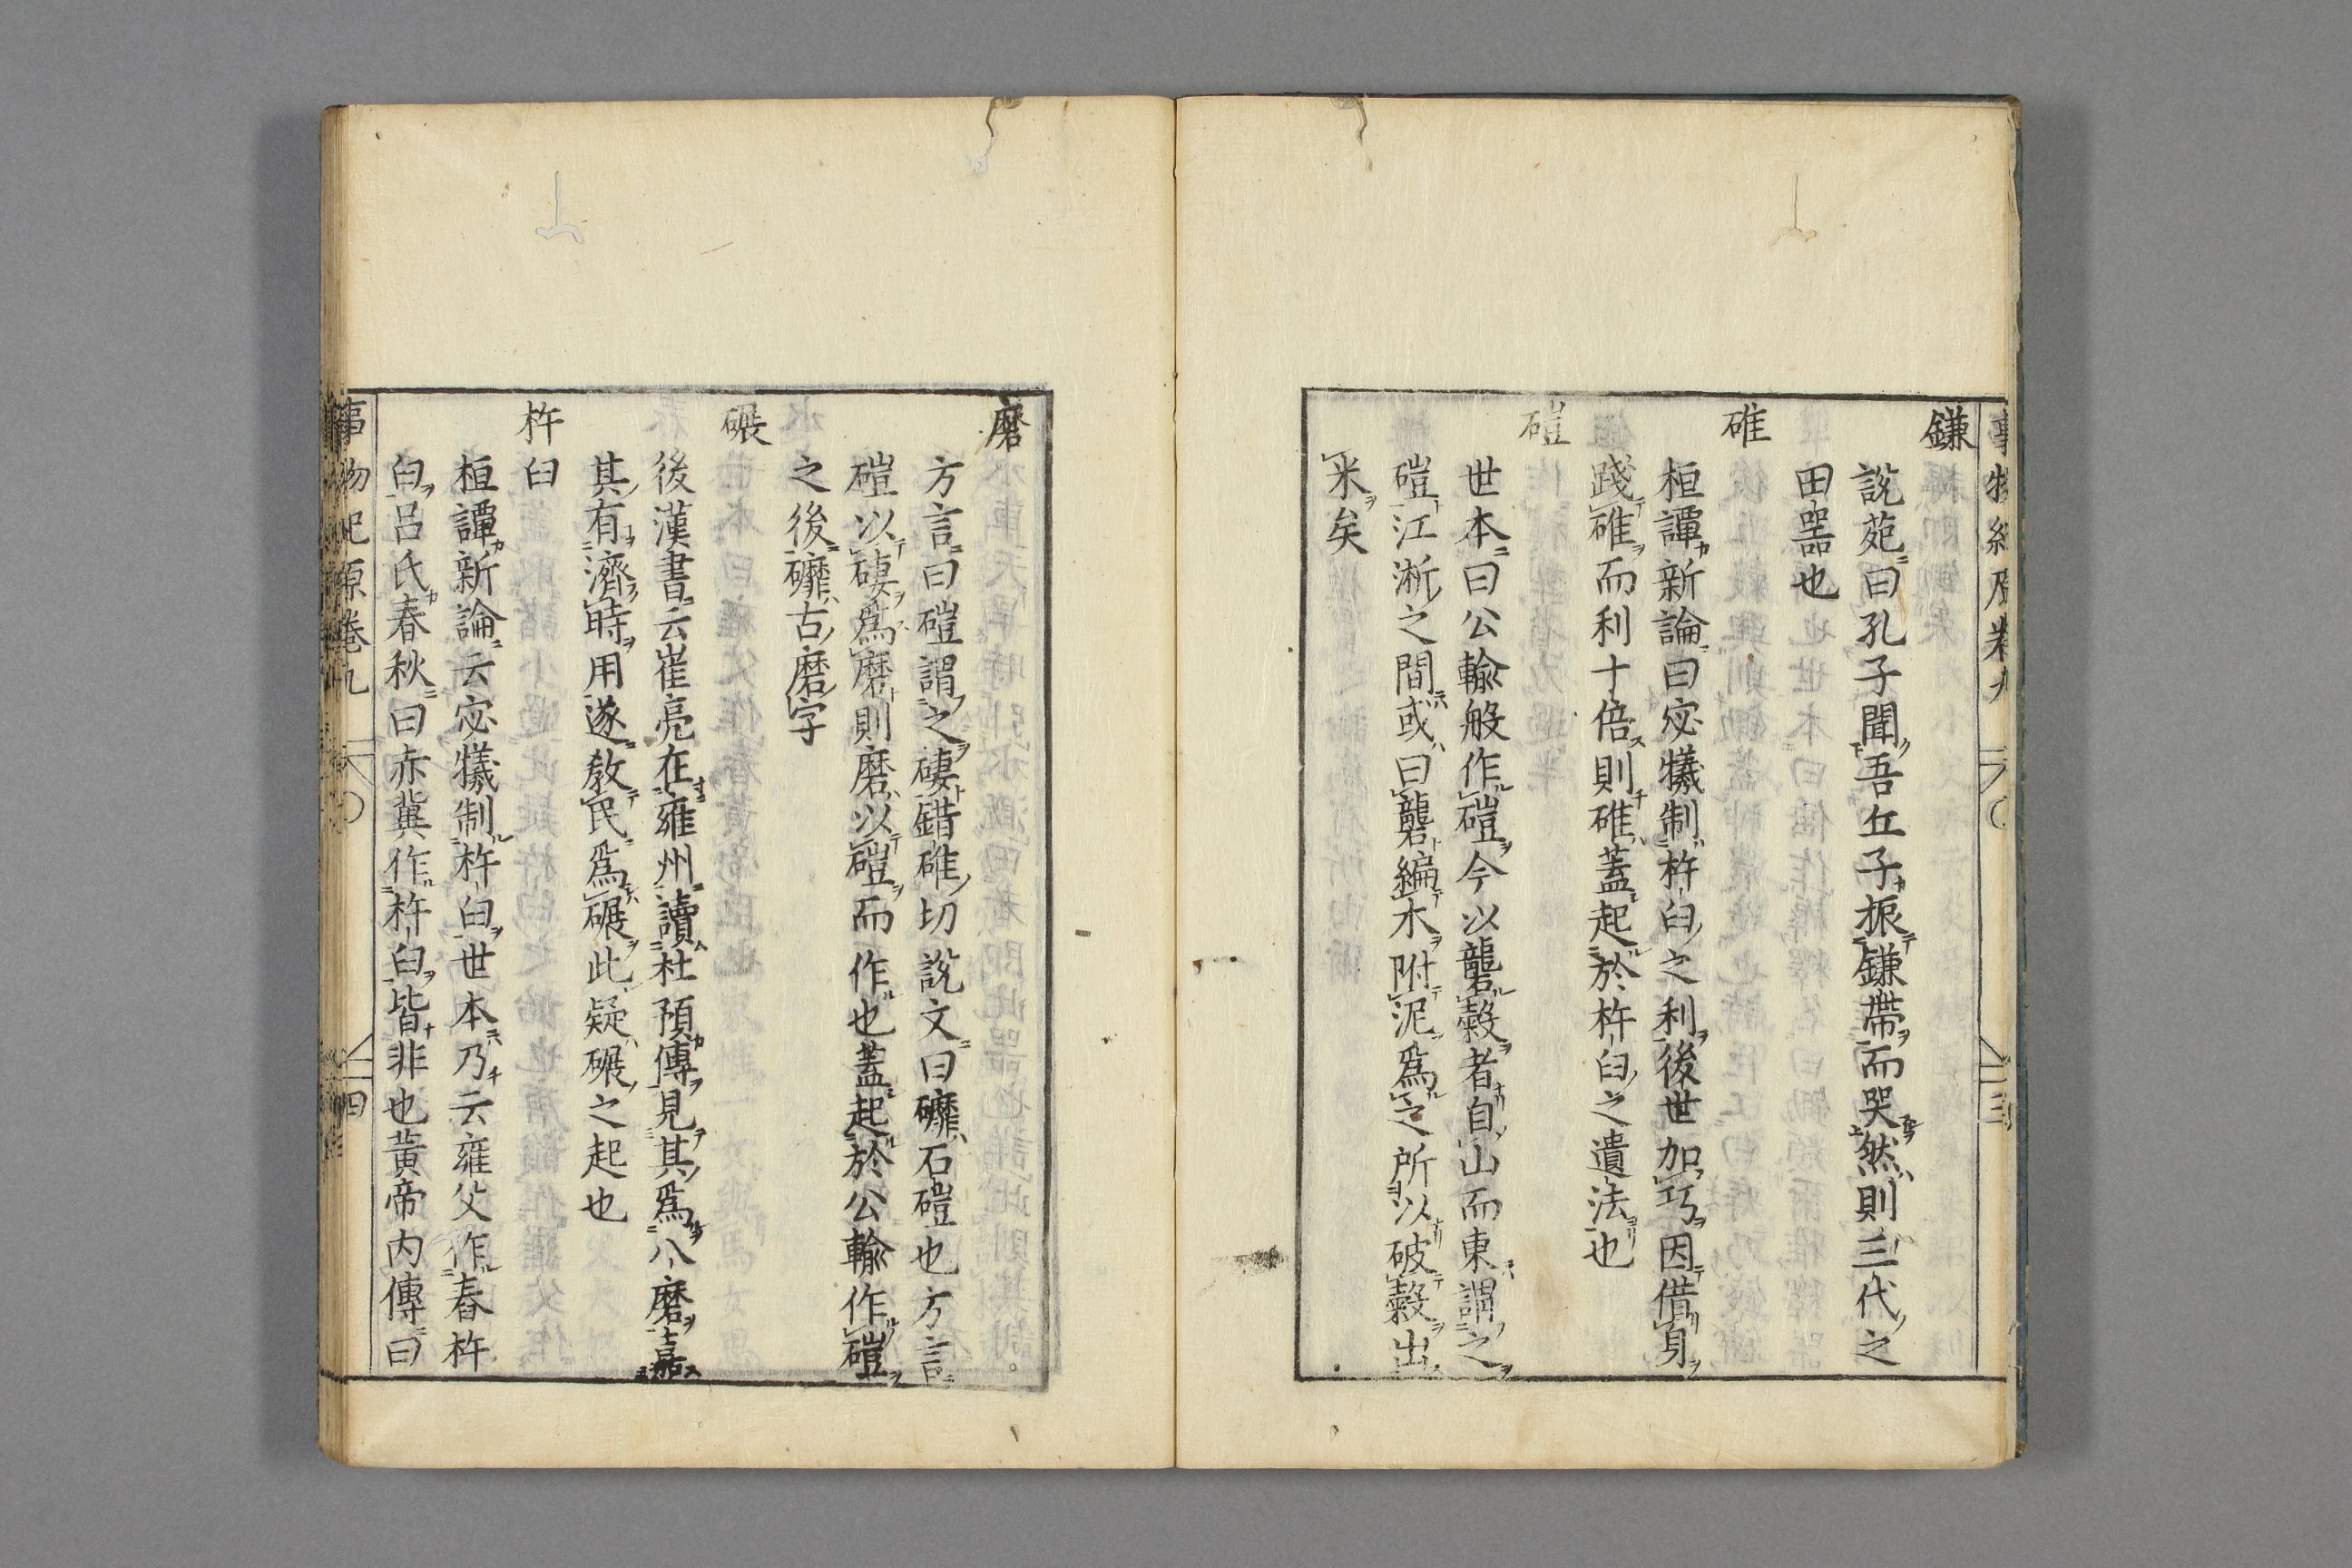 鎌
說苑曰孔子聞吾丘子振鎌帶而哭然則三代之
田器也
碓
桓譚新論曰宓犧制杵臼之利後世加巧因借身
踐碓而利十倍則碓蓋起於杵臼之遺法也
磑
世本曰公輸般作磑今以礱穀者自山而東謂之
磑江淅之間或曰礱編木附泥爲之所以破穀出
米矣
磨
方言曰磑謂之䃀錯碓切說文曰䃺石磑也方言
磑以䃀爲磨則磨以磑而作也蓋起於公輸作磑
之後䃺古磨字
碾
後漢書云崔亮在雍州讀杜預傳見其爲八磨嘉
其有濟時用遂教民爲碾此疑碾之起也
杵臼
桓譚新論云宓犧制杵臼世本乃云雍父作舂杵
臼呂氏春秋曰赤冀作杵臼皆非也黃帝內傳曰
事物紀原卷九
四